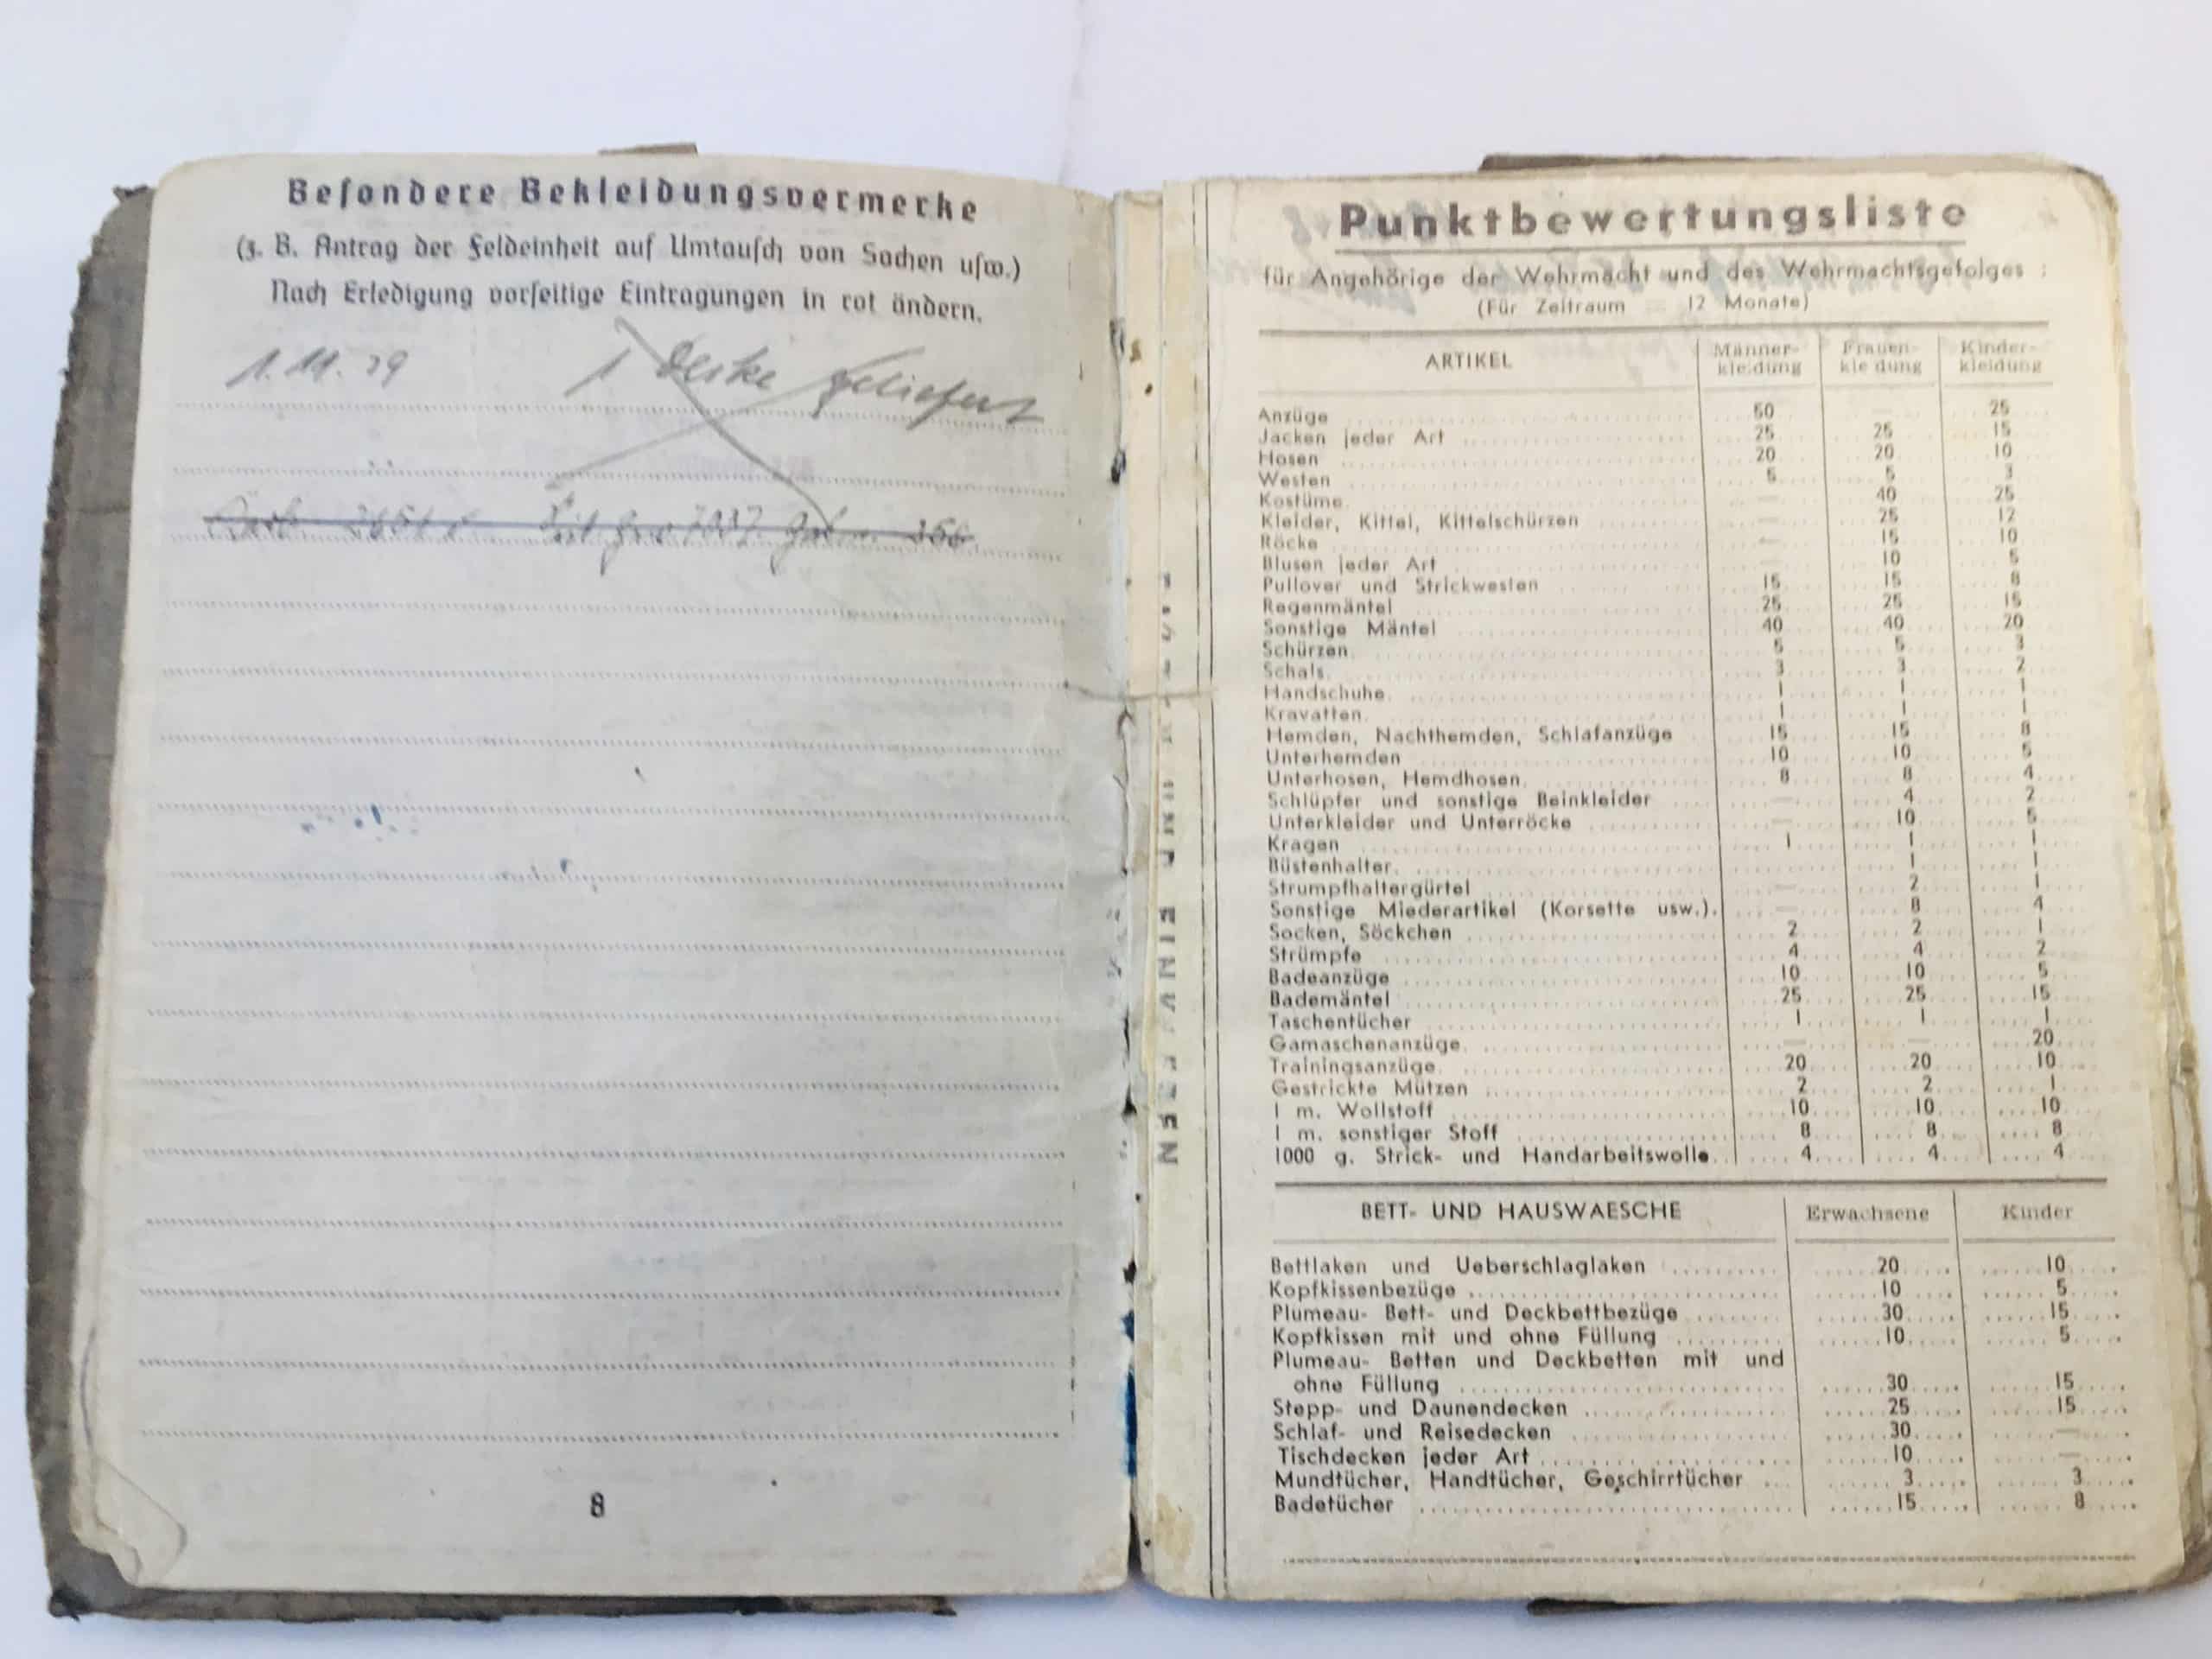 Besondere Bekleidungsvermerke
(z. B. Antrag der Feldeinheit auf Umtausch von Sachen usw.)
Nach Erledigung vorseitige Eintragungen in rot ändern.
1. 11. 39 1 Decke geliefert
8
Punktbewertungsliste
für Angehörige der Wehrmacht und des Wehrmachtsgefolges :
(Für Zeitraum 12 Monate)
ARTIKEL Männer-kleidung Frauen-kleidung Kinder-kleidung
Anzüge 50 — 25
Jacken jeder Art 25 25 15
Hosen 20 20 10
Westen 5 5 3
Kostüme — 40 25
Kleider, Kittel, Kittelschürzen — 25 12
Röcke — 15 10
Blusen jeder Art — 10 5
Pullover und Strickwesten 15 15 8
Regenmäntel 25 25 15
Sonstige Mäntel 40 40 20
Schürzen 5 5 3
Schals 3 3 2
Handschuhe 1 1 1
Kravatten 1 1 1
Hemden, Nachthemden, Schlafanzüge 15 15 8
Unterhemden 10 10 5
Unterhosen, Hemdhosen 8 8 4
Schlüpfer und sonstige Beinkleider — 4 2
Unterkleider und Unterröcke — 10 5
Kragen 1 1 1
Büstenhalter 1 1
Strumpfhaltergürtel — 2 1
Sonstige Miederartikel (Korsette usw.) — 8 4
Socken, Söckchen 2 2 1
Strümpfe 4 4 2
Badeanzüge 10 10 5
Bademäntel 25 25 15
Taschentücher 1 1 1
Gamaschenanzüge — — 20
Trainingsanzüge 20 20 10
Gestrickte Mützen 2 2 1
1 m. Wollstoff 10 10 10
1 m. sonstiger Stoff 8 8 8
1000 g. Strick- und Handarbeitswolle 4 4 4
BETT- UND HAUSWAESCHE Erwachsene Kinder
Bettlaken und Ueberschlaglaken 20 10
Kopfkissenbezüge 10 5
Plumeau- Bett- und Deckbettbezüge 30 15
Kopfkissen mit und ohne Füllung 10 5
Plumeau- Betten und Deckbetten mit und
ohne Füllung 30 15
Stepp- und Daunendecken 25 15
Schlaf- und Reisedecken 30 —
Tischdecken jeder Art 10 —
Mundtücher, Handtücher, Geschirrtücher 3 3
Badetücher 15 8